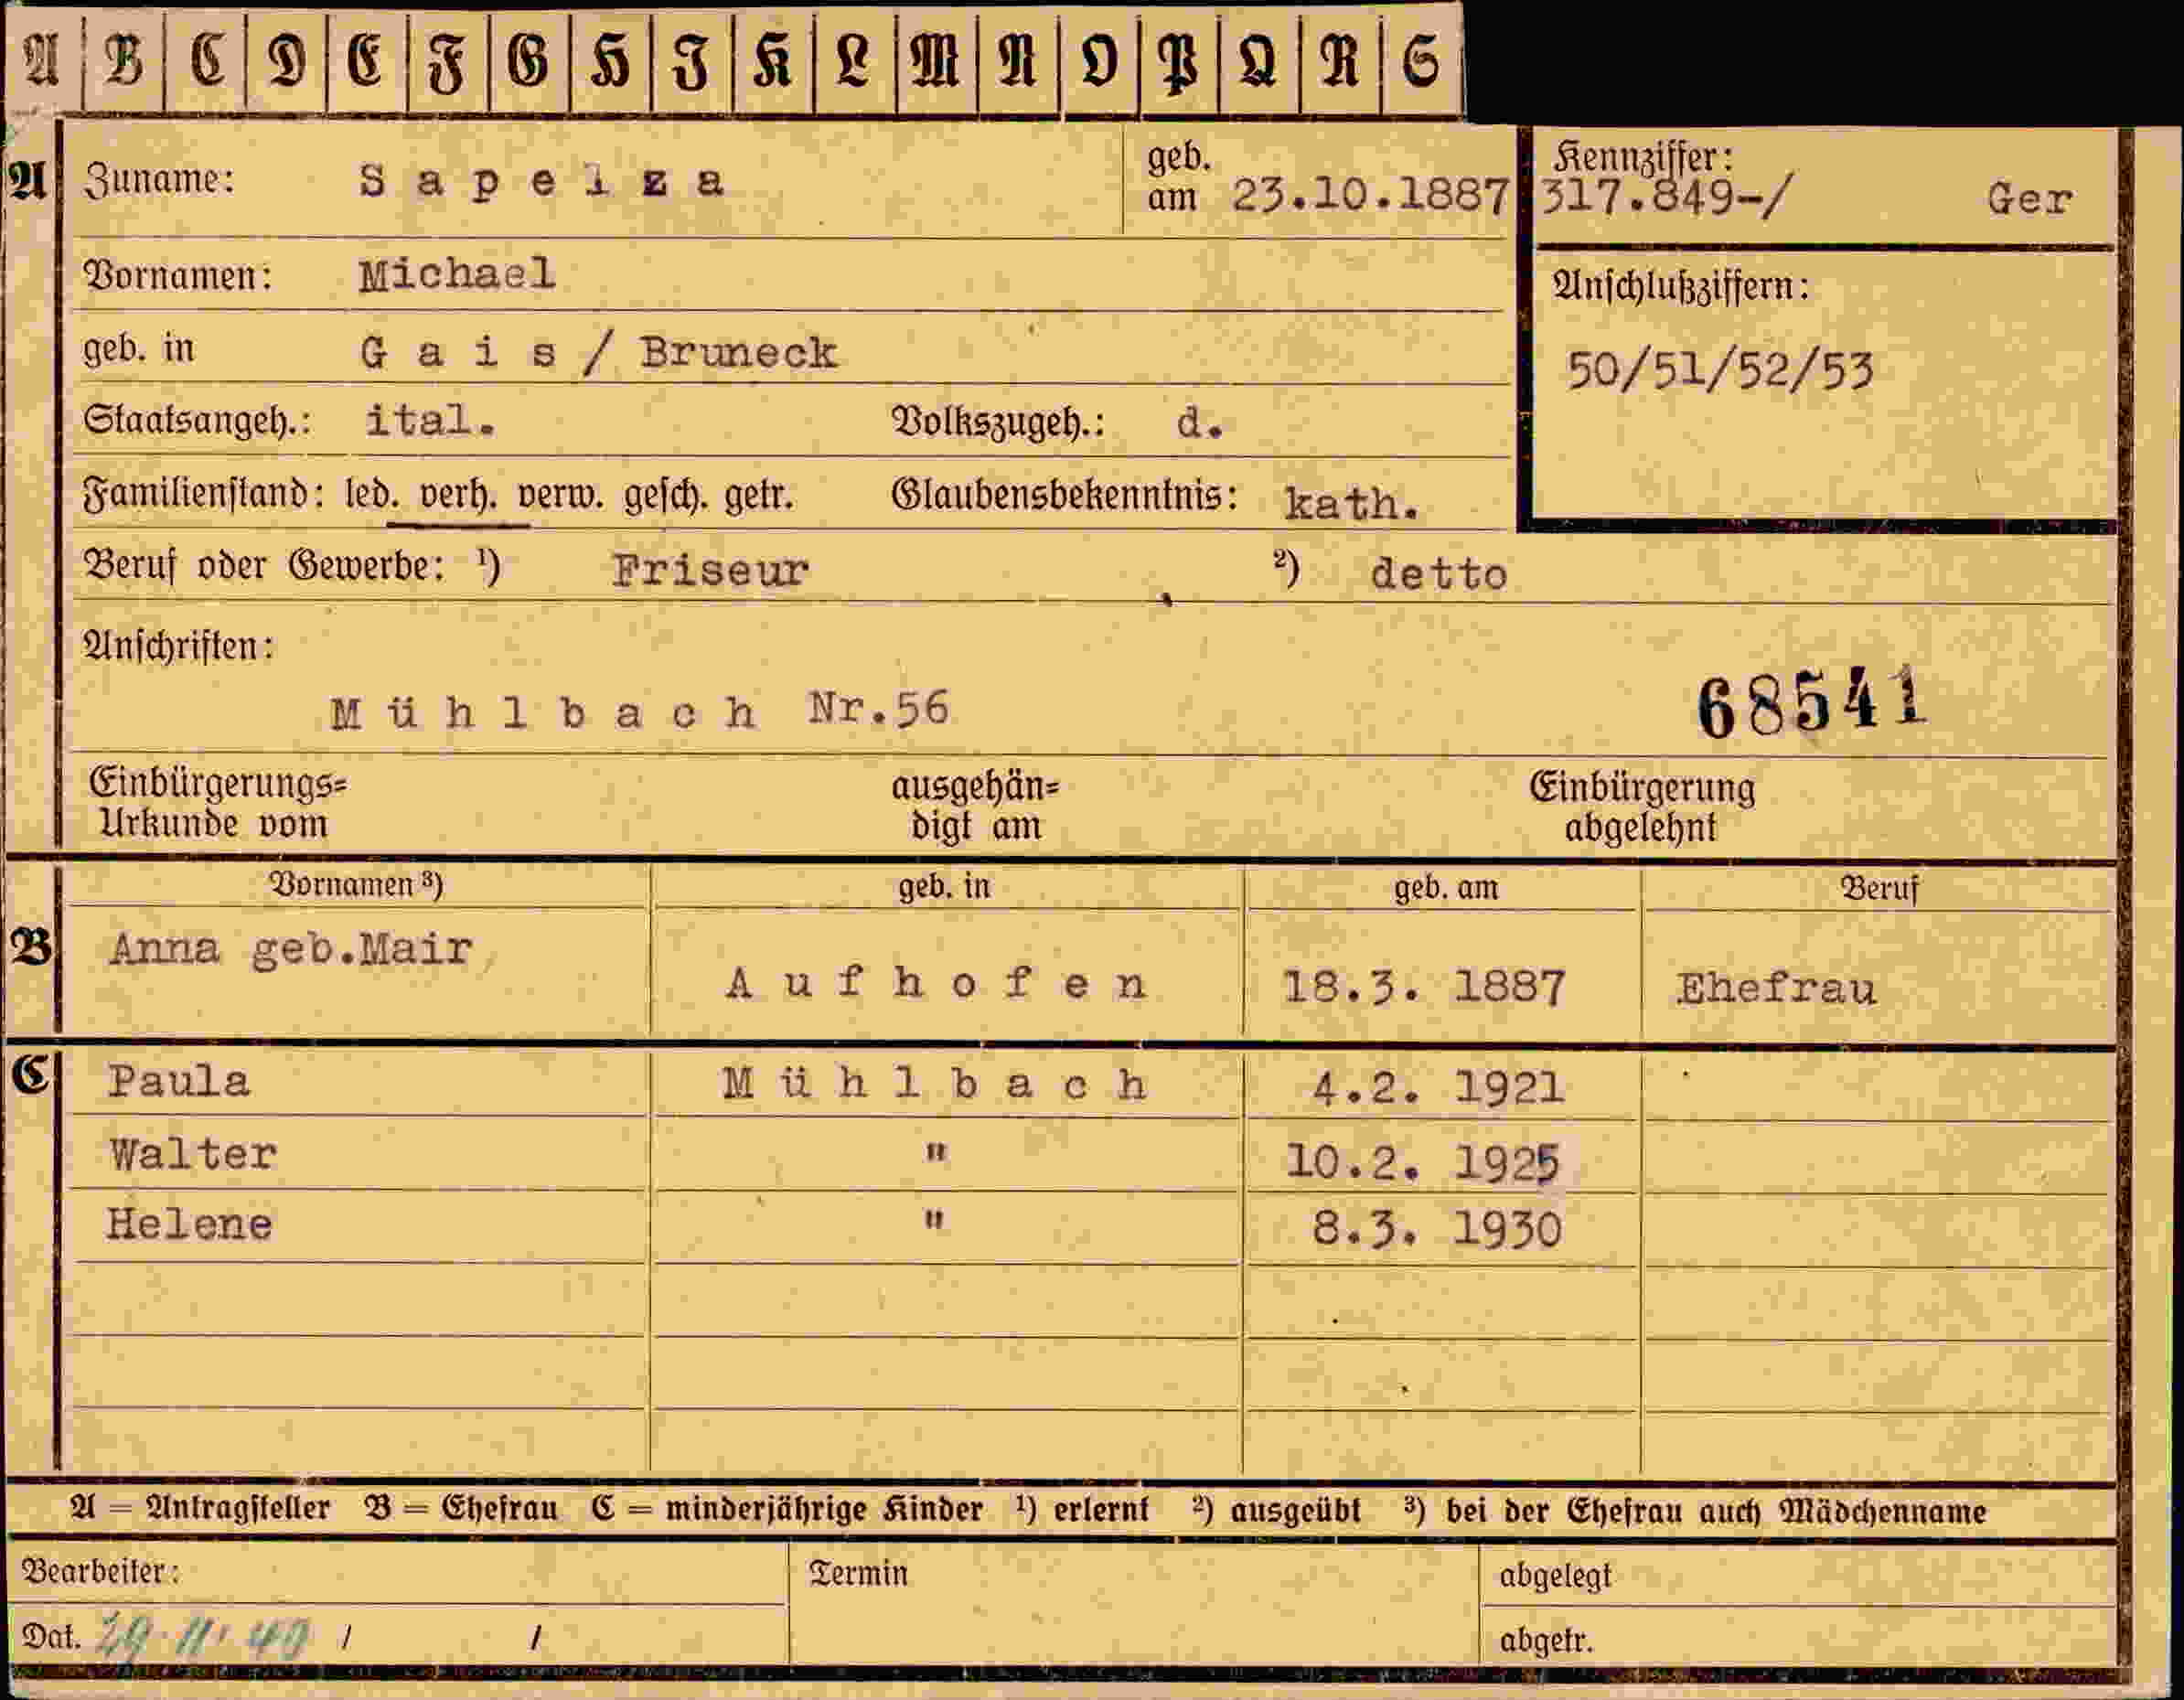 A B C D E F G H I K L M N O P Q R S
A Zuname: Sapelza geb. am 23.10.1887 Kennziffer: 317.849-/ Ger
Vornamen: Michael Anschlußziffern:
geb. in Gais/Bruneck 50/51/52/53
Staatsangeh.: ital. Volkszugeh.: d.
Familienstand: led. verh. verw. gesch. getr. Glaubensbekenntnis: kath.
Beruf oder Gewerbe: ¹) Friseur ²) detto
Anschriften:
Mühlbach Nr.56 68541
Einbürgerungs= ausgehän= Einbürgerung
Urkunde vom digt am abgelehnt
Vornamen ³) geb. in geb. am Beruf
B Anna geb.Mair Aufhofen 18.3. 1887 Ehefrau
C Paula Mühlbach 4.2. 1921
Walter " 10.2. 1925
Helene " 8.3. 1930
A = Antragsteller B = Ehefrau C = minderjährige Kinder ¹) erlernt ²) ausgeübt ³) bei der Ehefrau auch Mädchenname
Bearbeiter: Termin abgelegt
Dat. 29.11.40 / / abgetr.